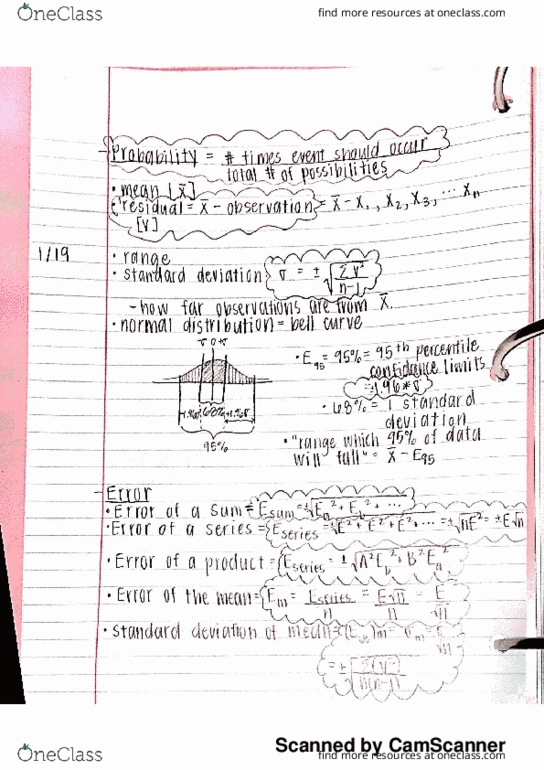 OneClass
find more resources at oneclass.com
- Probability = # times event should occur / total # of possibilities
• mean [x̄]
residual = x̄ - observation = x̄ - x₁, x₂, x₃, ... xₙ
[v]
1/19
• range
• standard deviation σ = ±√(Σv²/n-1)
- how far observations are from x̄.
• normal distribution = bell curve
-σ 0 +σ
68%
95%
• E₉₅ = 95% = 95th percentile
confidence limits
= 1.96*σ
• 68% = 1 standard
deviation
• "range which 95% of data
will fall" = x̄ - E95
- Error
• Error of a sum = Esum = ±√Ea² + Eb² + ...
• Error of a series = Eseries = ±√E² + E² + E² + ... = ±√nE² = ±E√n
• Error of a product = Eseries = ±√A²Eb² + B²Ea²
• Error of the mean = Em = Eseries/n = E√n/n = E/√n
• standard deviation of mean =
Scanned by CamScanner
OneClass
find more resources at oneclass.com